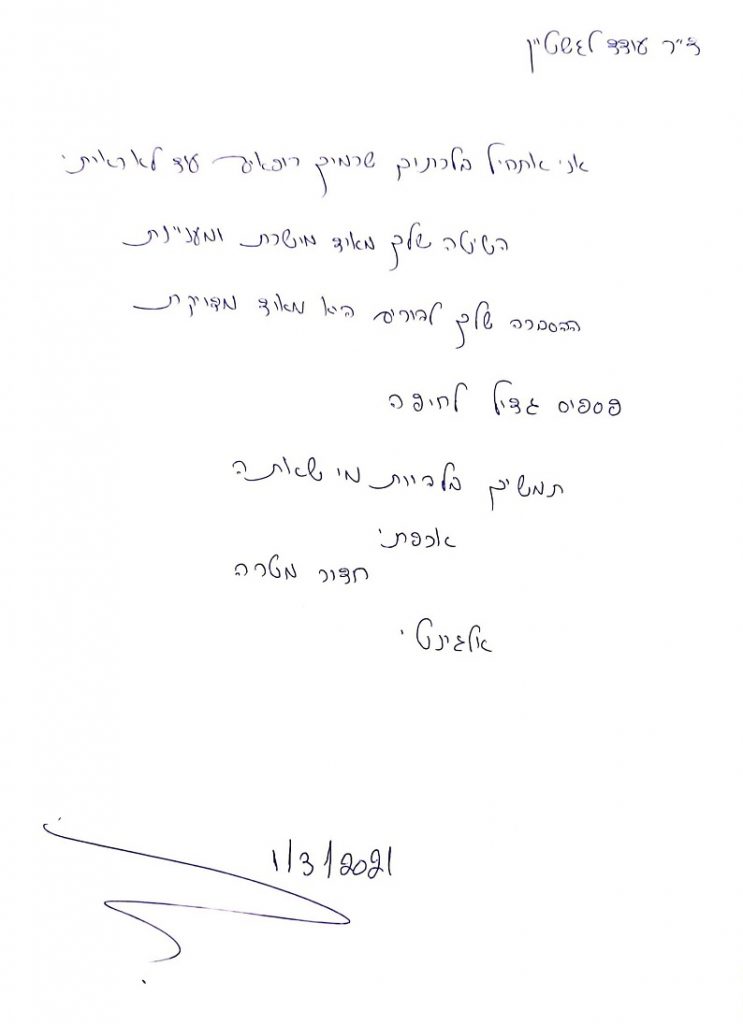 ד"ר עודד לגשטיין
אני אתחיל בלכתוב שרמת רופאים עוד לא ראיתי
השיטה שלך מאוד מישרת ומעניינת
ההסברה שלך לבוריה היא מאוד מדויקת
פספוס גדול לחיפה
תמשיך בלהיות מי שאתה
אכפתי
חדור מטרה
אלגנטי
1/3/2021